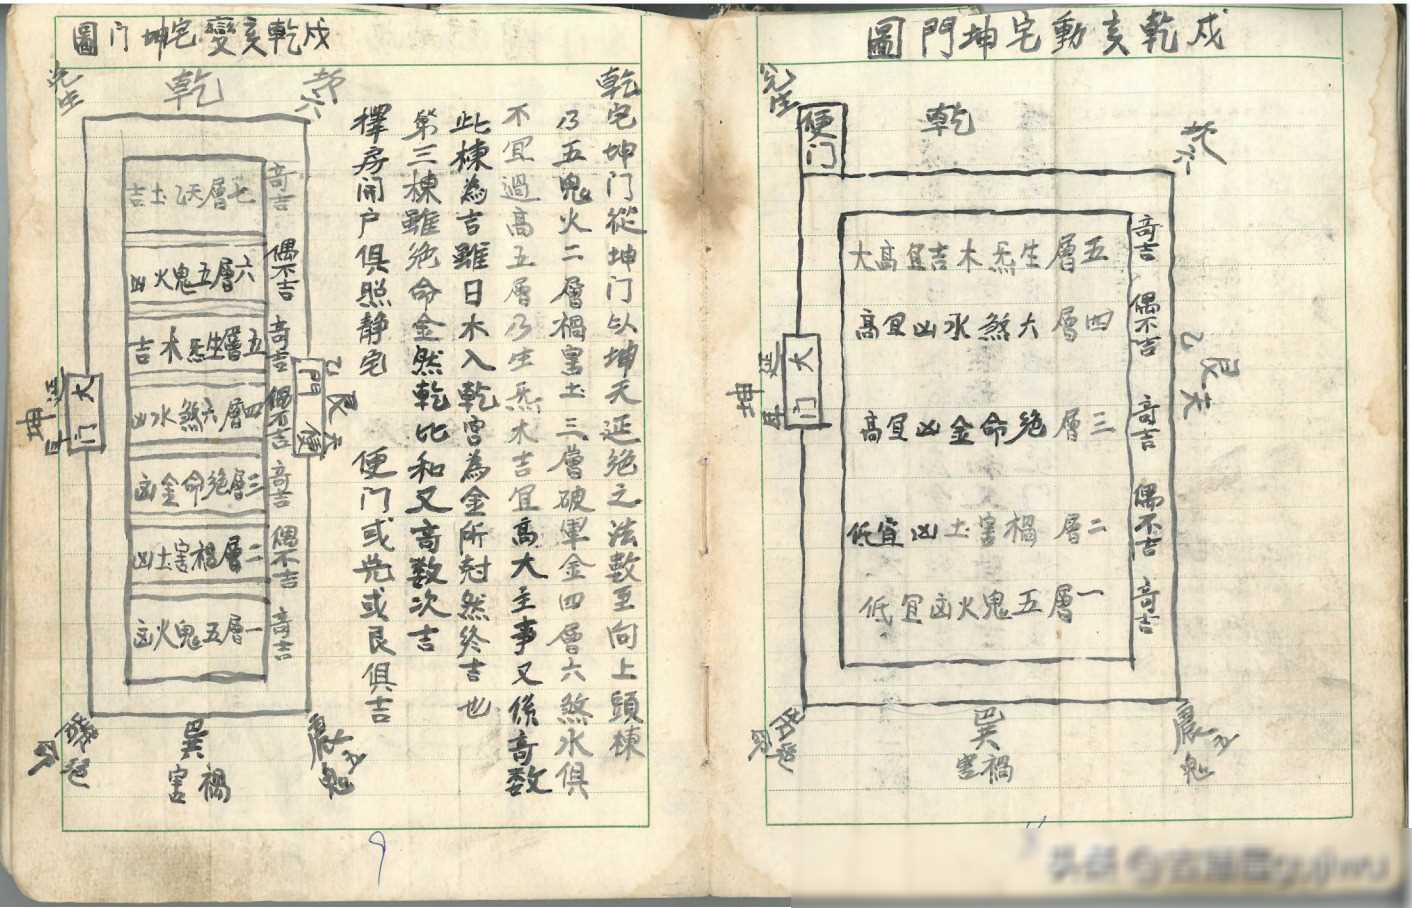 戍乾亥動宅坤門圖
便門
乾
坎六
兌生
五層生炁木吉宜高大
四層六煞水凶宜高
三層絕命金凶宜高
二層禍害土凶宜低
一層五鬼火凶宜低
奇吉
偶不吉
奇吉
偶不吉
奇吉
大门
坤延年
艮天乙
巽
禍害
震五鬼
戍乾亥變宅坤门圖
乾宅坤门從坤门以坤天延絕之法數至向上頭棟
乃五鬼火二層禍害土三層破軍金四層六煞水俱
不宜過高五層乃生炁木吉宜高大主事又係奇数
此棟為吉雖日木入乾宫為金所尅然終吉也
第三棟雖绝命金然乾比和又奇数次吉
擇房開户俱照静宅 便门或兌或艮俱吉
乾
坎六
兌生
七層天乙土吉
六層五鬼火凶
五層生炁木吉
四層六煞水凶
三層绝命金凶
二層禍害土凶
一層五鬼火凶
奇吉
偶不吉
奇吉
偶不吉
奇吉
偶不吉
奇吉
大门
坤延年
便門
艮天乙
巽
禍害
震五鬼